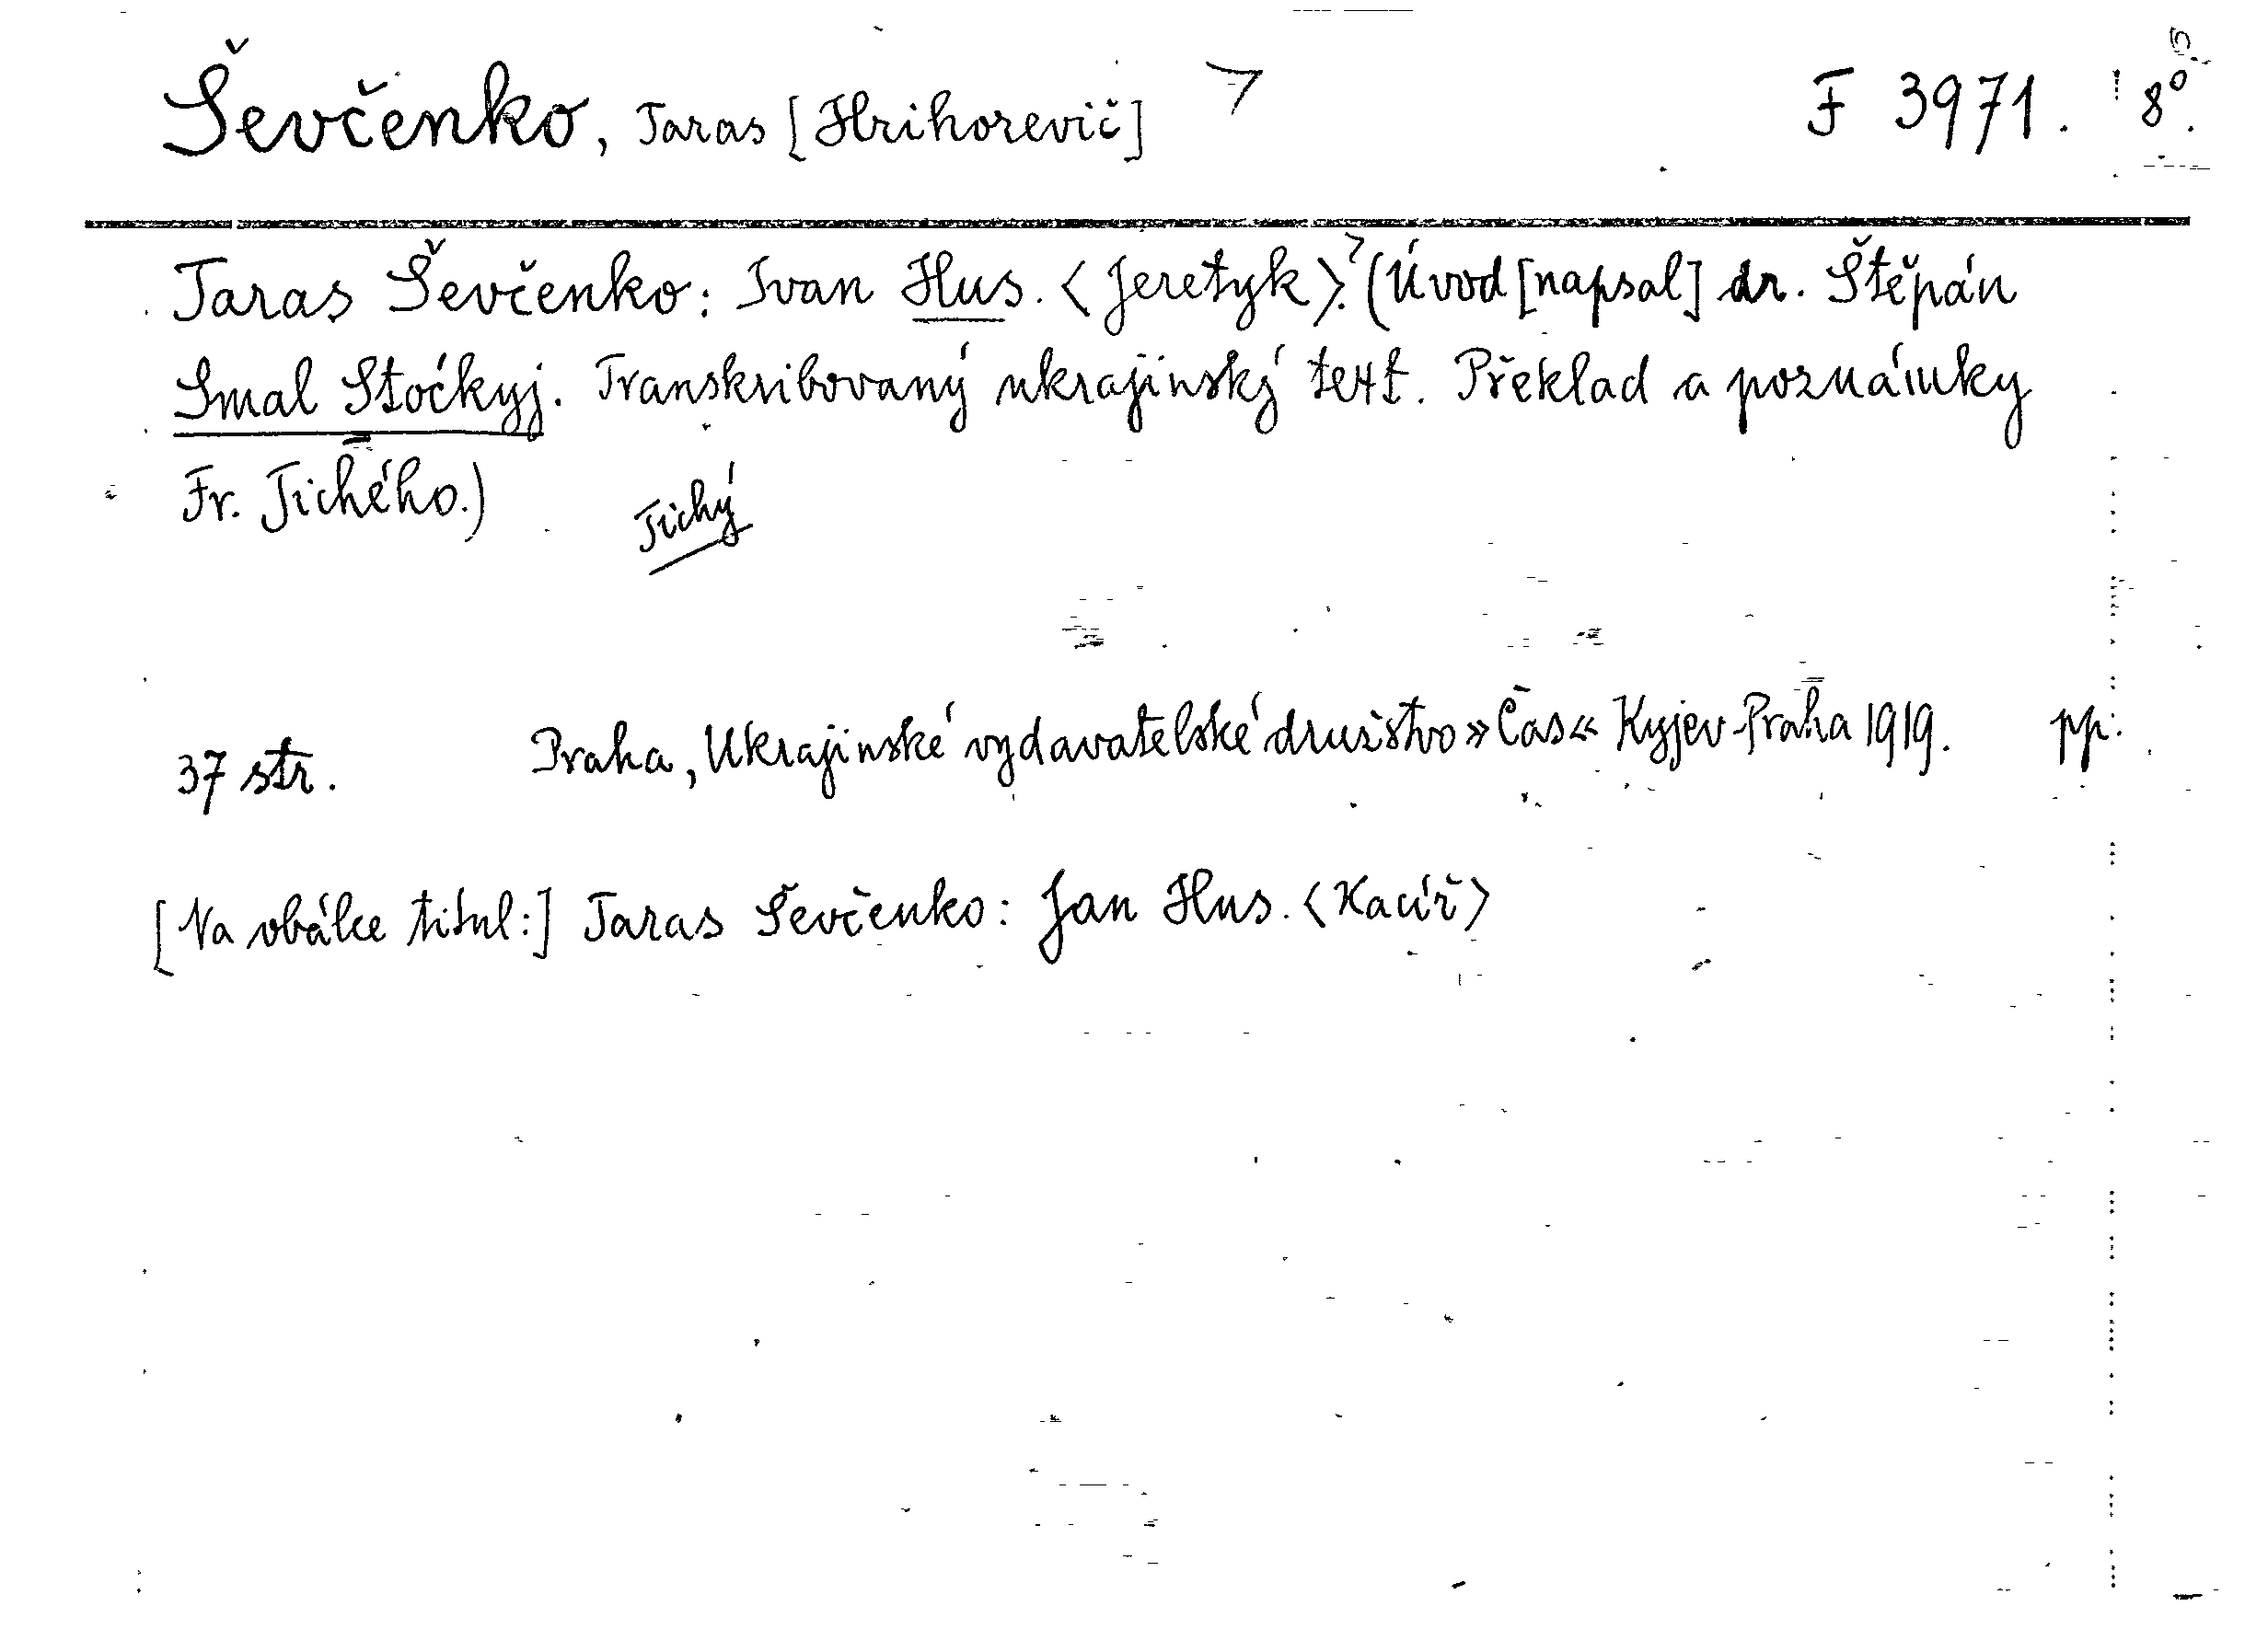 Ševčenko, Taras [Hrihorevič] F 3971. 8°.
Taras Ševčenko: Ivan Hus. <Jeretyk>. (Úvod [napsal] dr. Štěpán
Smal Stoćkyj. Transkribovaný ukrajinský text. Překlad a poznámky
Fr. Tichého.)
Tichý
37 str. Praha, Ukrajinské vydavatelské družstvo »Čas« Kyjev-Praha 1919. pp.
[Na obálce titul:] Taras Ševčenko: Jan Hus. <Kacíř>